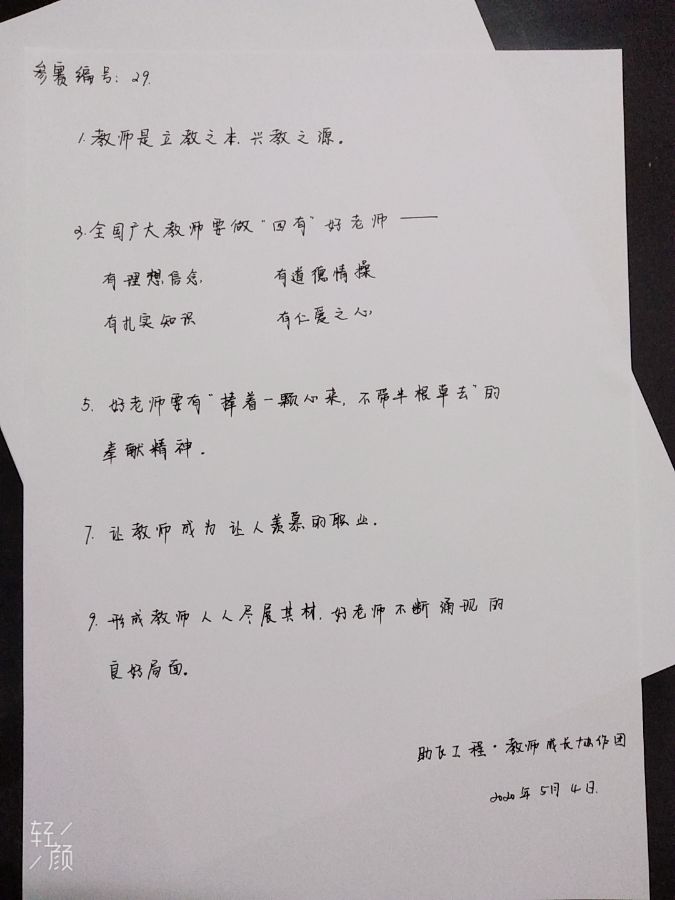 参赛编号：29.
1.教师是立教之本、兴教之源。
3.全国广大教师要做“四有”好老师——
有理想信念 有道德情操
有扎实知识 有仁爱之心
5. 好老师要有“捧着一颗心来，不带半根草去”的
奉献精神。
7. 让教师成为让人羡慕的职业。
9. 形成教师人人尽展其材，好老师不断涌现的
良好局面。
助飞工程·教师成长协作团
2020年5月4日.
轻
颜